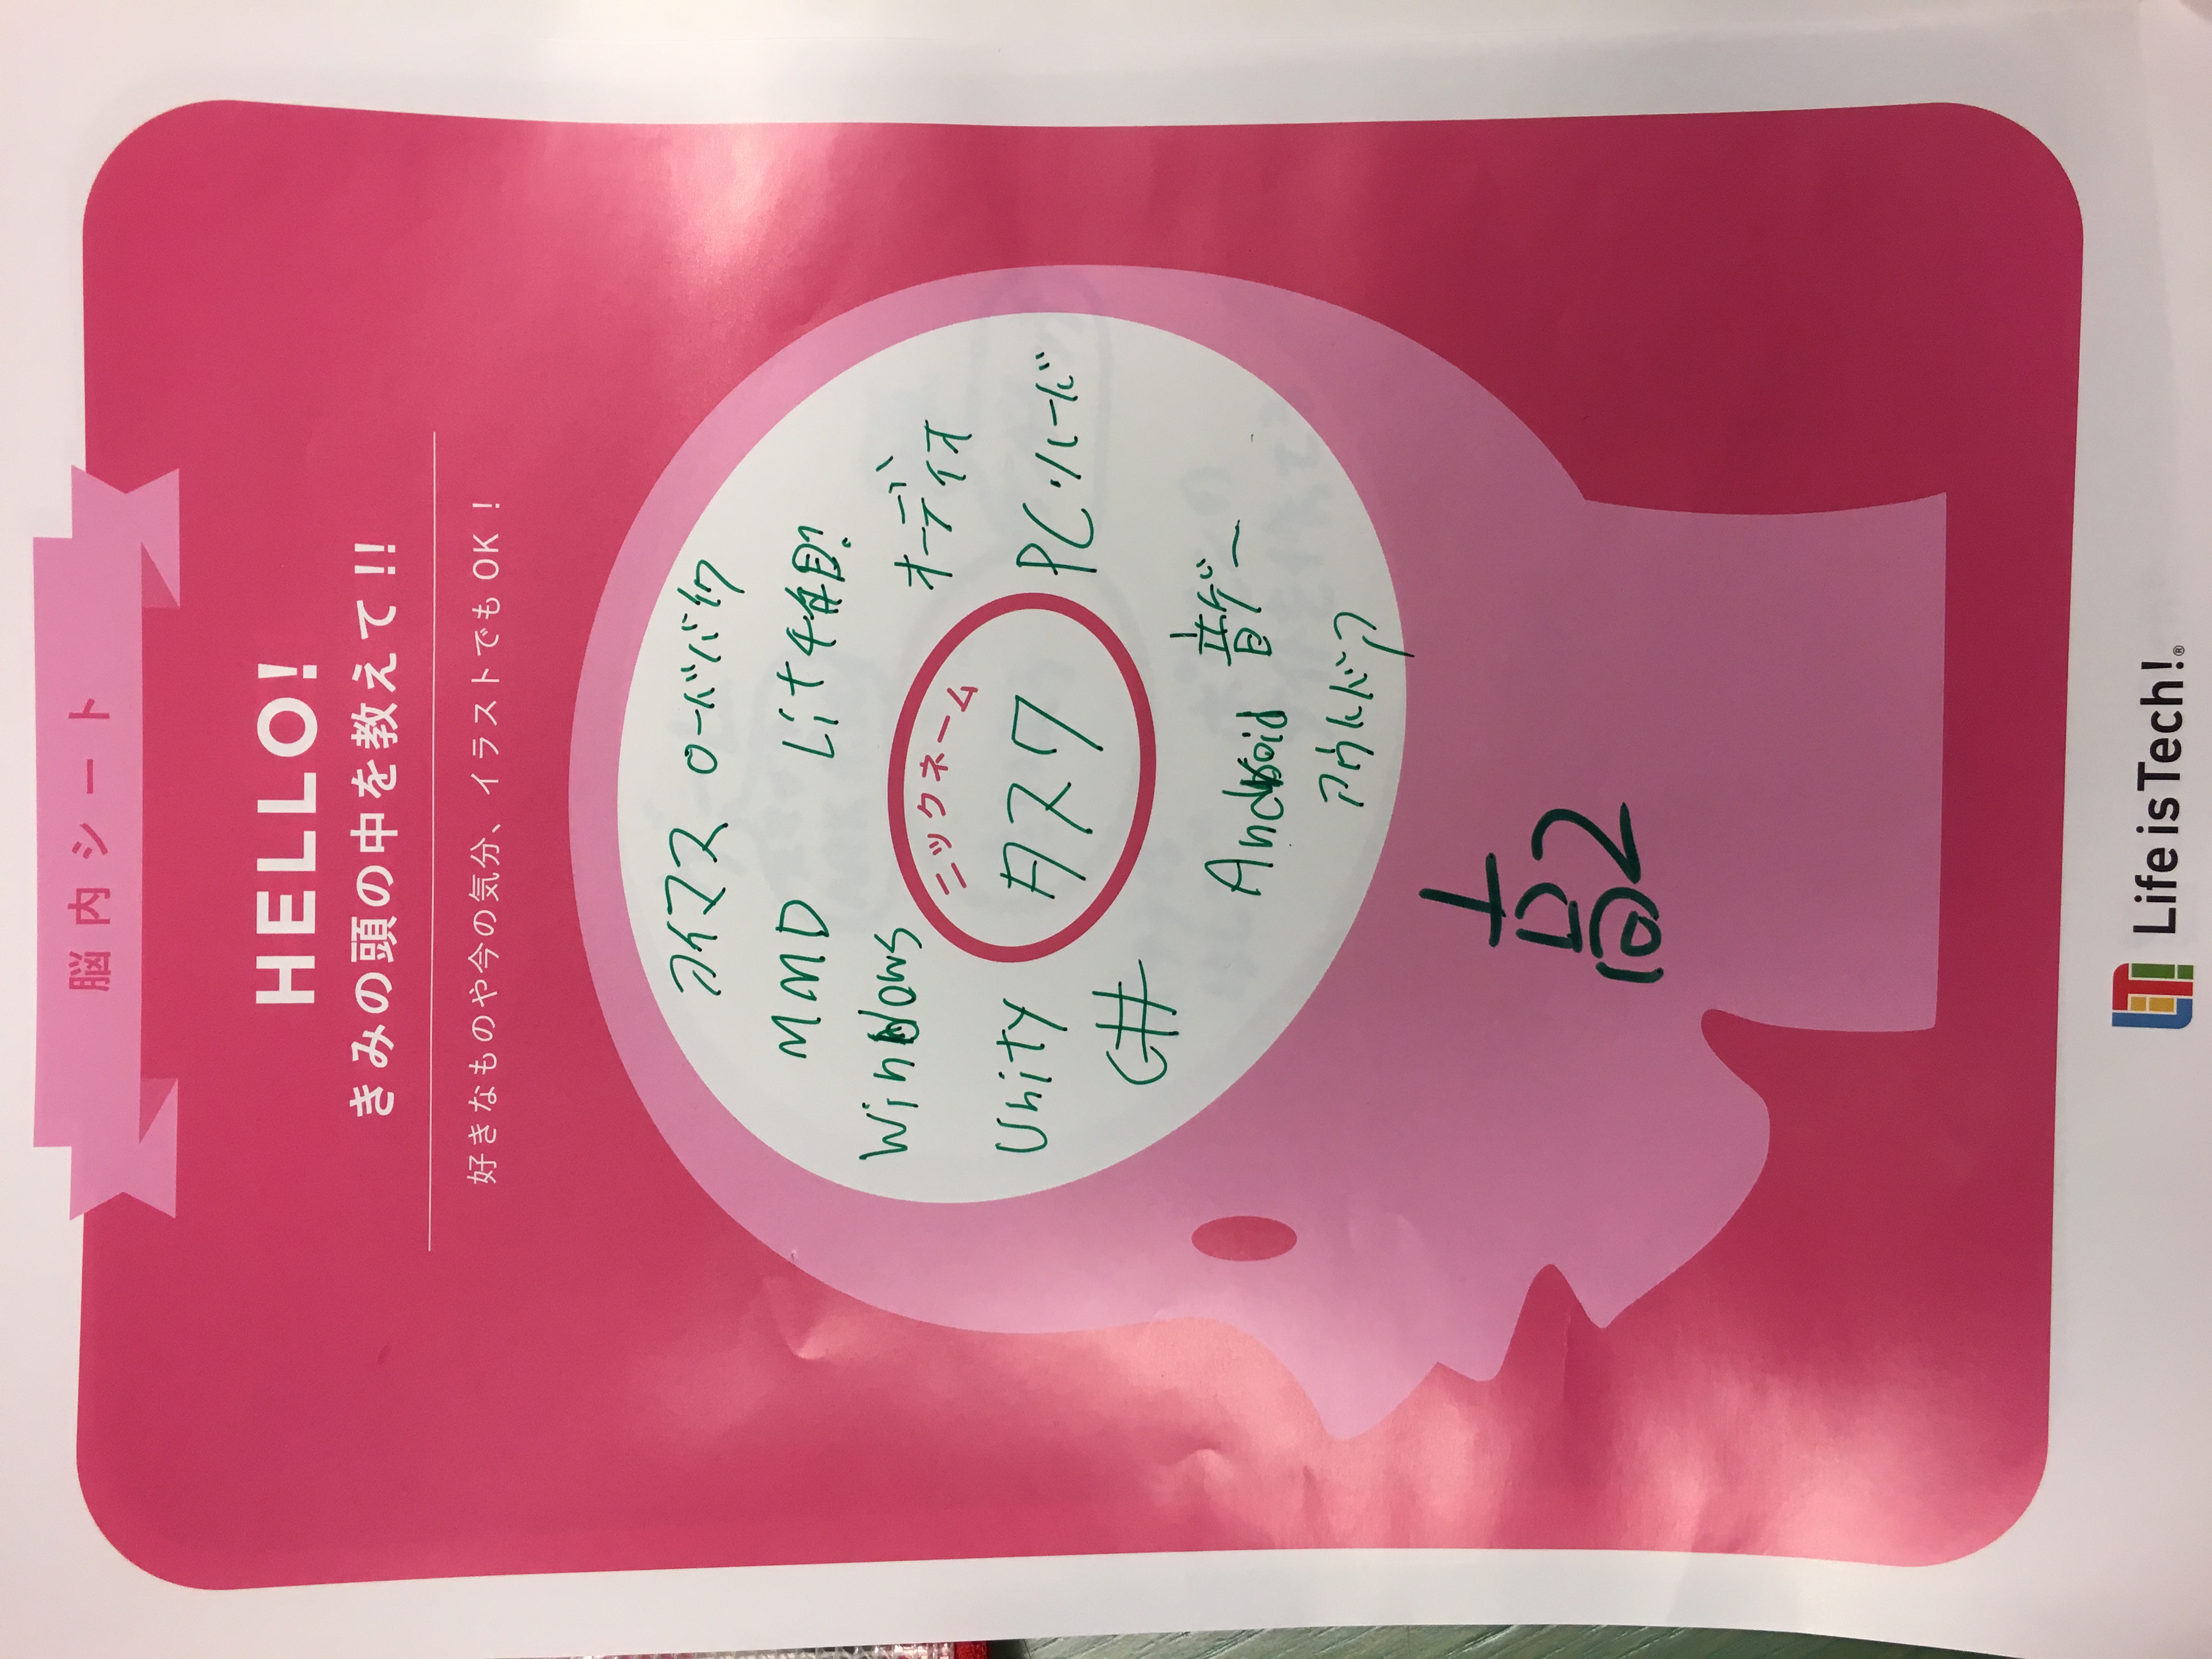 脳内シート
HELLO!
きみの頭の中を教えて!!
好きなものや今の気分、イラストでもOK!
アイマス ロードバイク
MMD Lit4年目?
Windows
オーディオ
ニックネーム
タスク
Unity
PCハード
C#
Android 音ゲー
アウトドア
高2
Life is Tech!®